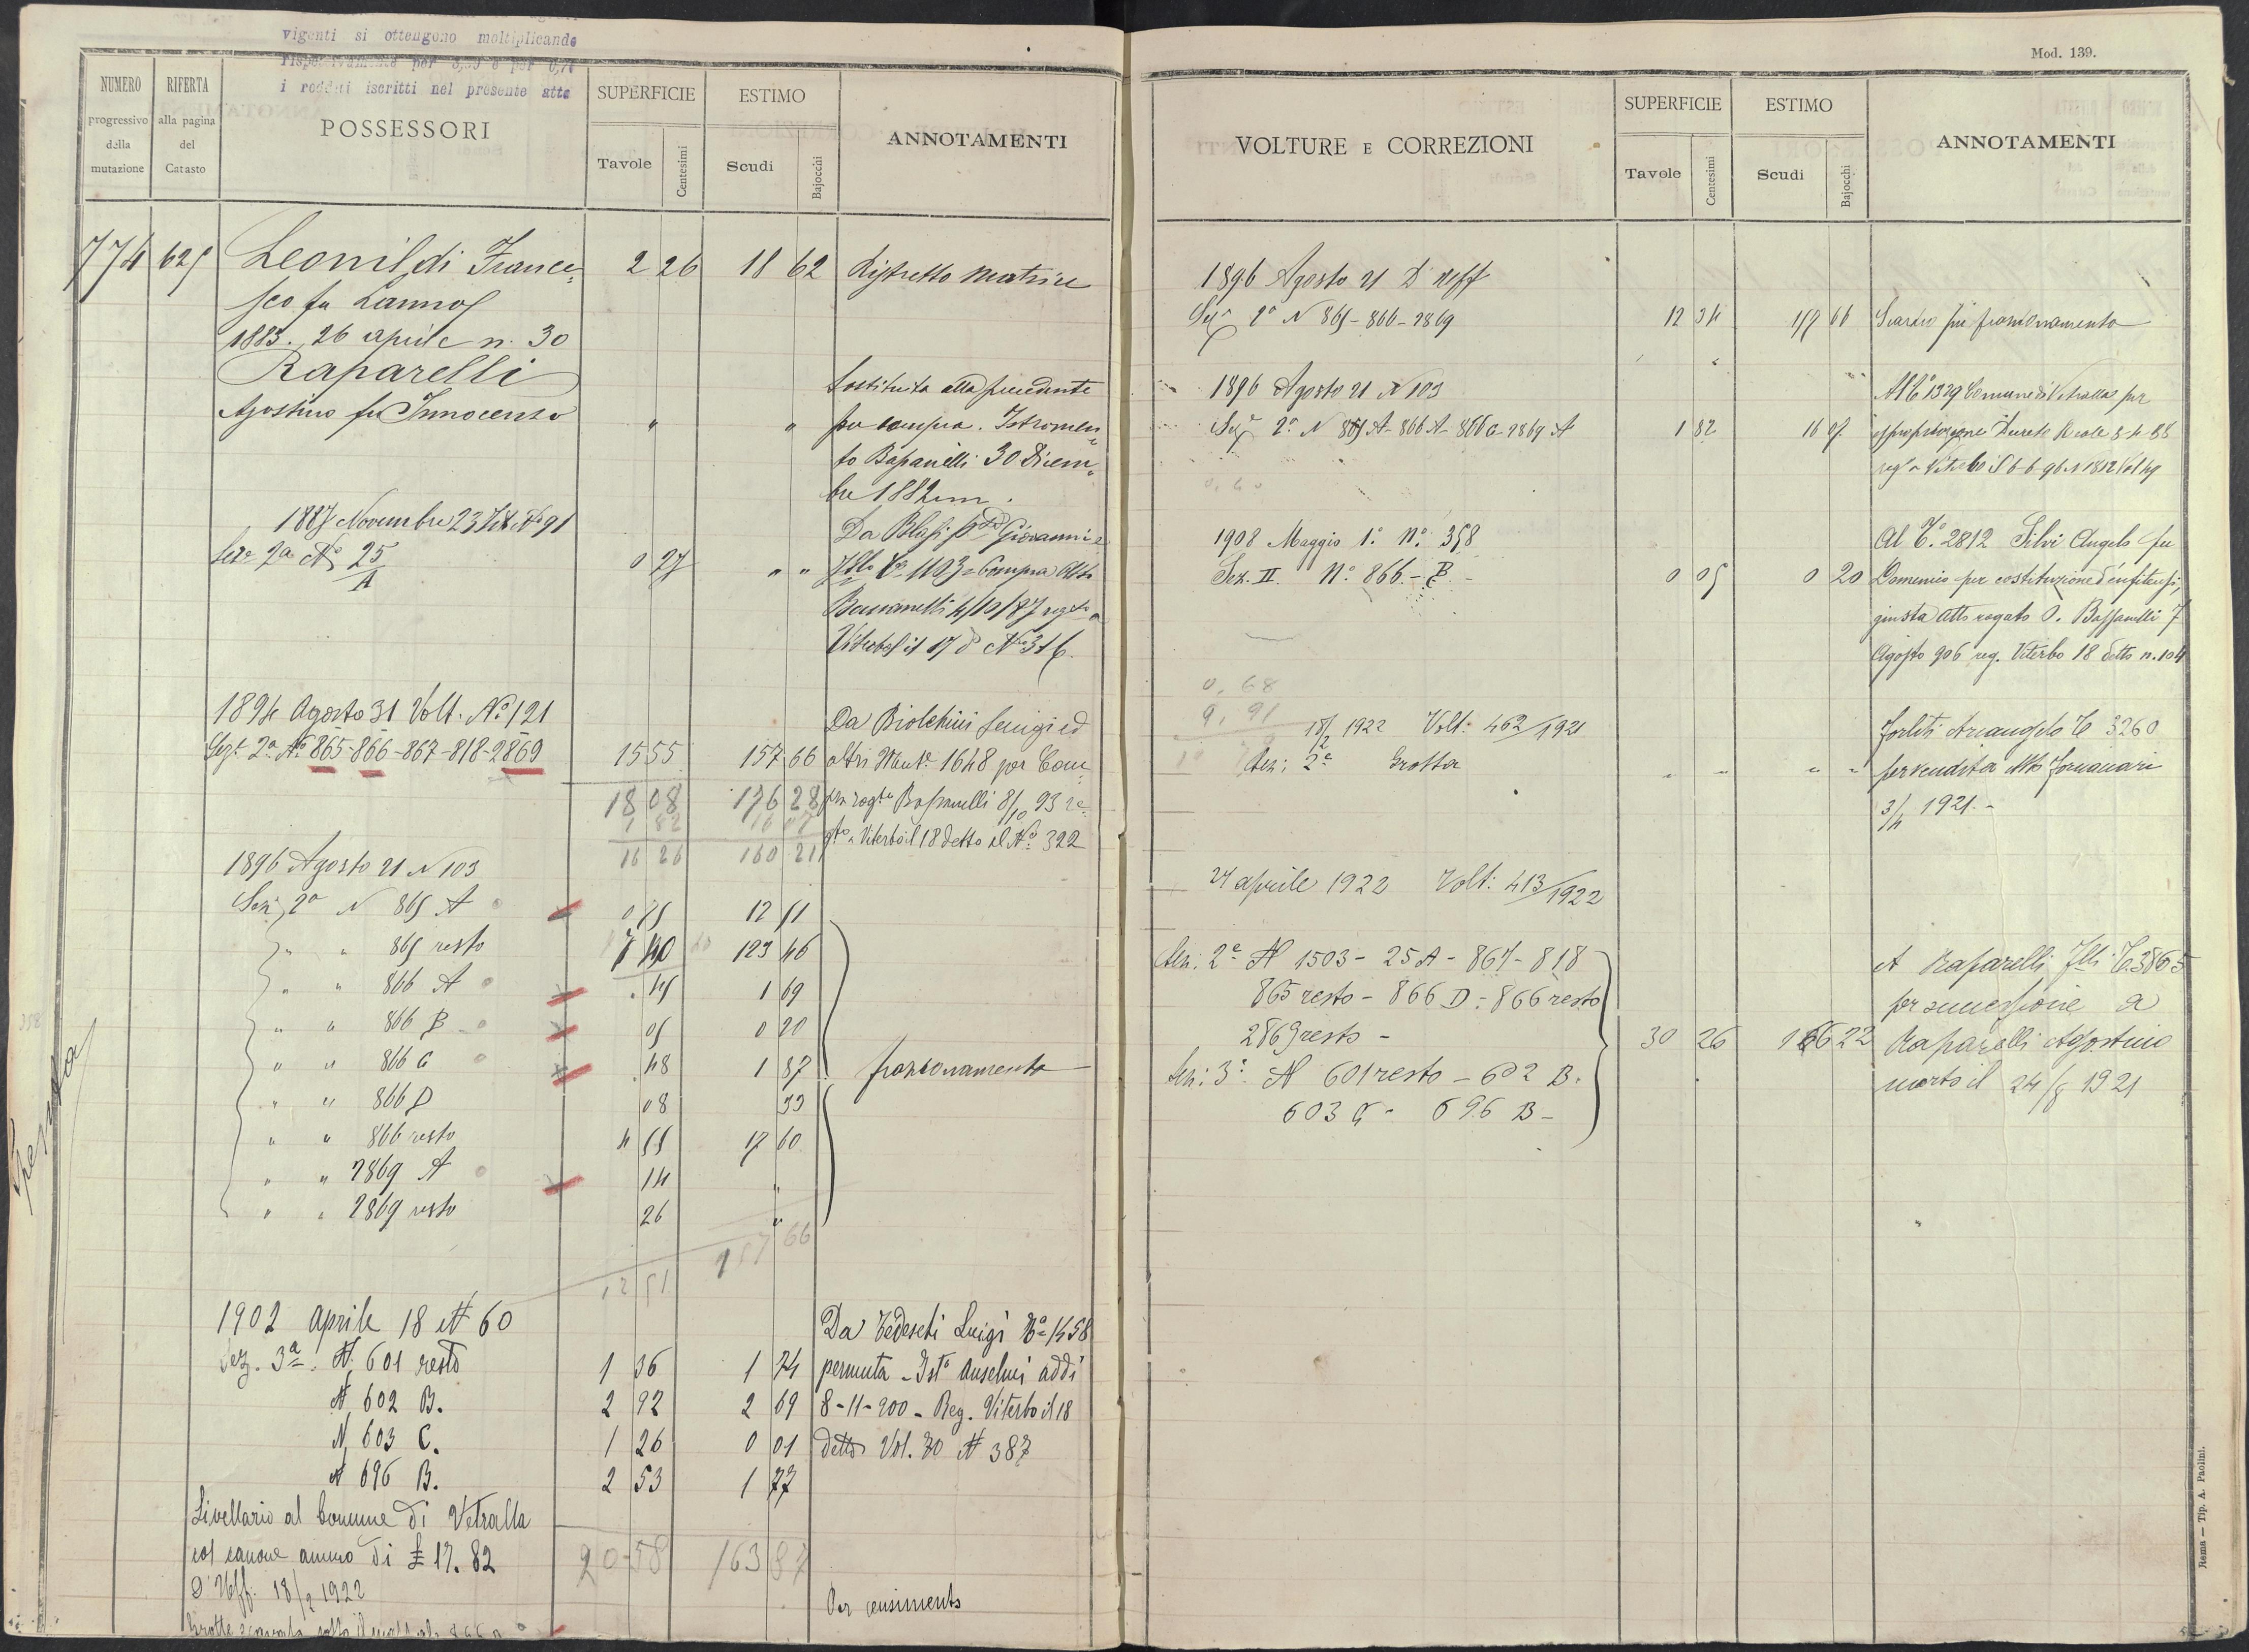 vigenti si ottengono moltiplicando
i redditi iscritti nel presente atto
NUMERO progressivo della mutazione
RIFERTA alla pagina del Catasto
POSSESSORI
SUPERFICIE
Tavole Centesimi
ESTIMO
Scudi Bajocchi
ANNOTAMENTI
774 625 Leonildi France= 2 26 18 62 Ristretto matrice
sco fu
1883. 26 aprile n. 30
Raparelli Sostituita alla precedente
Agostino fu Innocenzo " " per compra. Istromen=
to 30 Dicem=
bre 1882
1887 Novembre 23 N° 91 Da Giovanni
Sez. 2a N° 25/A 0 27 " " Compra
4/10/87
Viterbo il 17 N° 316
1894 Agosto 31 Volt. N° 121 Da Biolchini Luigi ed
Sez. 2a N° 865-866-867-818-2869 15 55 157 66 altri 1648 per Com
18 08 176 28 pra 8/10 93 re
1 82 16 07 Viterbo il 18 detto al N° 322
16 26 160 21
1896 Agosto 21 N 103
Sez. 2a N 865 A 0 75 12 51
" " 865 resto 7 40 123 46
" " 866 A 1 69
" " 866 B 05 0 20
" " 866 C 48 1 87 frazionamento
" " 866 D 08 33
" " 866 resto 17 60
" " 2869 A 14 "
" " 2869 resto 26 "
157 66
12 51
1902 Aprile 18 N 60 Da Tedeschi Luigi 1458
Sez. 3a N. 601 resto 1 36 1 74 permuta - Ist° Anselmi addì
N 602 B. 2 92 2 69 8-11-900 - Reg. Viterbo il 18
N 603 C. 1 26 0 01 detto Vol. 70 N 387
N 696 B. 2 53 1 77
Livellario al Comune di Vetralla
col canone annuo di £ 17.82 20 58 163 87
D'Uff. 18/2 1922 Per censimento
Mod. 139.
VOLTURE E CORREZIONI
SUPERFICIE
Tavole Centesimi
ESTIMO
Scudi Bajocchi
ANNOTAMENTI
1896 Agosto 21 D'Uff
Sez. 2a N 865-866-2869 12 34 Scarico per frazionamento
1896 Agosto 21 N 103 Al 1329 Comune di Vetralla per
Sez. 2a N 865 A-866 A-866 C-2869 A 1 82 16 07 espropriazione Decreto Reale
0,60
1908 Maggio 1° N° 358 Al 2812 Silvi Angelo fu
Sez. II. N° 866.-B.- 0 05 0 20 Domenico per costituzione d'enfiteusi,
giusta atto rogato 7
Agosto 906 reg. Viterbo 18 detto n. 104
0,68
9,91
18/2 1922 Volt: 462/1921 Arcangelo 3260
Sez: 2a Grotta " " " " per vendita Atto
1921.-
24 aprile 1922 Volt: 413/1922
Sez: 2a N 1503 - 25A - 867 - 818 A Raparelli F.lli 3865
865 resto - 866 D - 866 resto per successione a
2869 resto - 30 26 166 22 Raparelli Agostino
Sez: 3a N 601 resto - 602 B. morto il 24/8 1921
603 C - 696 B -
Roma — Tip. A. Paolini.